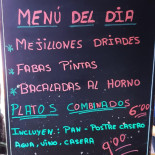 MENÚ DEL DÍA
* MEJILLONES DRIADES
* FABAS PINTAS
* BACALADAS AL HORNO
PLATOS COMBINADOS 6'00
INCLUYEN: PAN - POSTRE CASERO
AGUA, VINO, CASERA
9'00